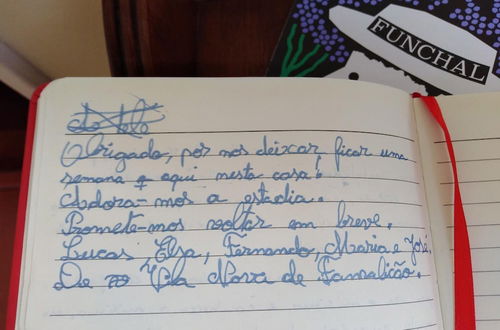 FUNCHAL
Obrigado, por nos deixar ficar uma
semana aqui nesta casa!
Adora-mos a estadia..
Promete-mos voltar em breve.
Lucas, Elsa, Fernando, Maria e José.
De Vila Nova de Famalicão.